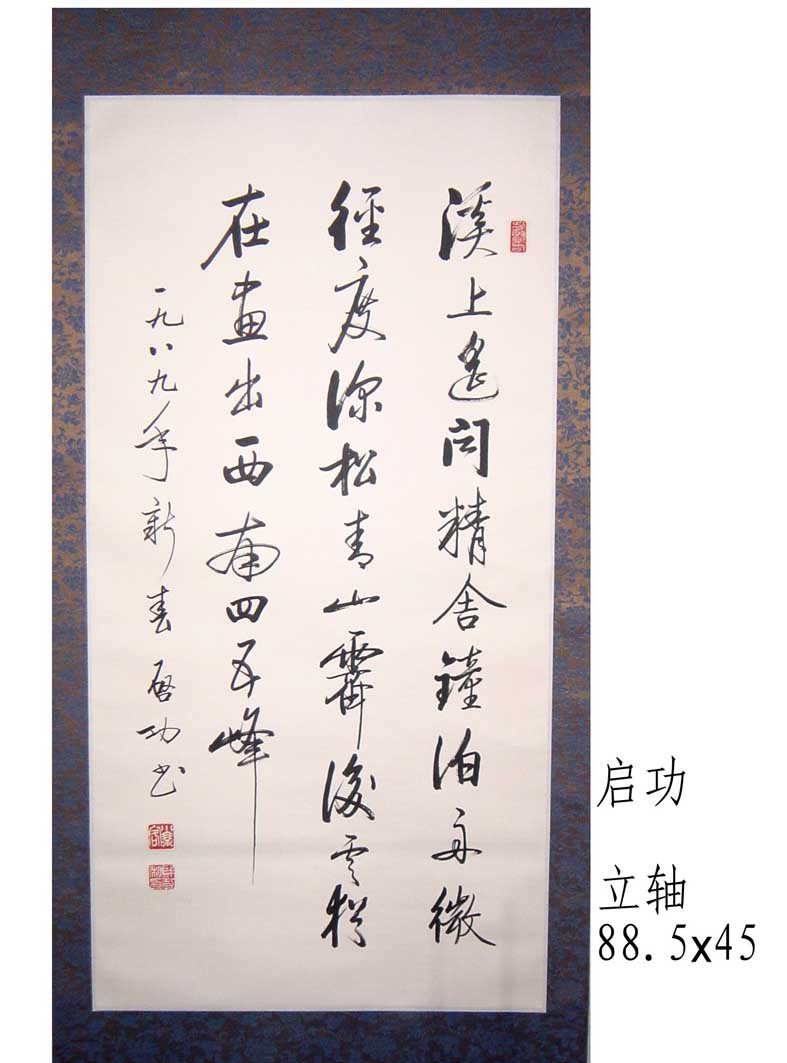 溪上遙聞精舍鐘泊舟微
徑度深松青山霽後雲猶
在畫出西南四五峰
一九八九年新春启功书
启功
立轴
88.5x45